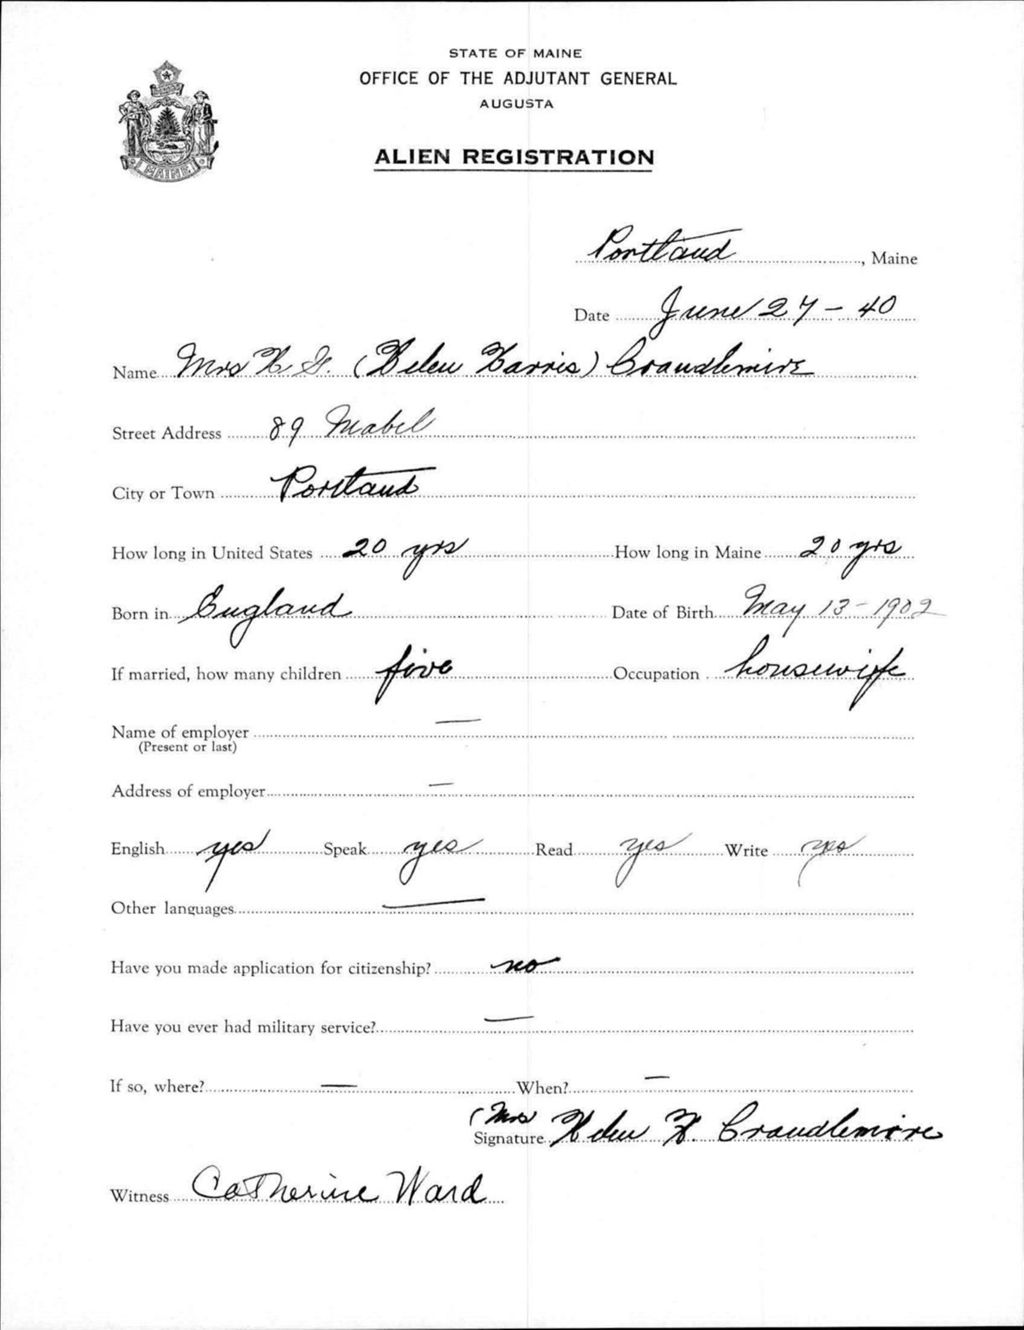 STATE OF MAINE
OFFICE OF THE ADJUTANT GENERAL
AUGUSTA
ALIEN REGISTRATION
MAINE
Portland, Maine
Date June 27 - 40
Name Mrs H. G. (Helen Harris) Crandlemire
Street Address 89 Mabel
City or Town Portland
How long in United States 20 yrs How long in Maine 20 yrs
Born in England Date of Birth May 13 - 1902
If married, how many children five Occupation housewife
Name of employer —
(Present or last)
Address of employer —
English yes Speak yes Read yes Write yes
Other languages —
Have you made application for citizenship? no
Have you ever had military service? —
If so, where? — When? —
(Mrs
Signature Helen H. Crandlemire
Witness Catherine Ward